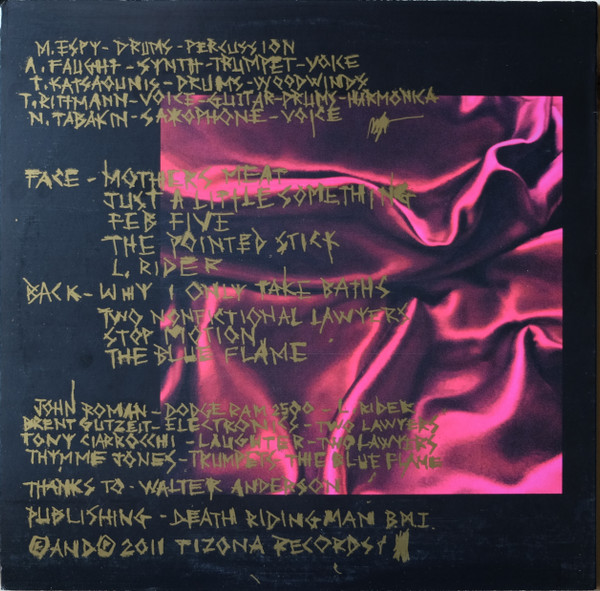 M. ESPY - DRUMS - PERCUSSION
A. FAUGHT - SYNTH - TRUMPET - VOICE
T. KATSAOUNIS - DRUMS - WOODWINDS
T. RITTMANN - VOICE - GUITAR - DRUMS - HARMONICA
N. TABAKIN - SAXOPHONE - VOICE
FACE - MOTHERS MEAT
JUST A LITTLE SOMETHING
FEB FIVE
THE POINTED STICK
L. RIDER
BACK - WHY I ONLY TAKE BATHS
TWO NONFICTIONAL LAWYERS
STOP MOTION
THE BLUE FLAME
JOHN ROMAN - DODGE RAM 2500 - L. RIDER
BRENT GUTZEIT - ELECTRONICS - TWO LAWYERS
TONY CIARROCCHI - LAUGHTER - TWO LAWYERS
THYMME JONES - TRUMPETS THE BLUE FLAME
THANKS TO - WALTER ANDERSON
PUBLISHING - DEATH RIDING MAN B.M.I.
© AND ℗ 2011 TIZONA RECORDS